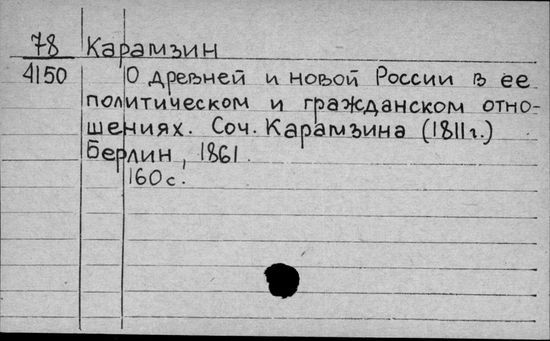 78 Карамзин
4150 О древней и новой России в ее
политическом и гражданском отно-
шениях. Соч. Карамзина (1811 г.)
Берлин, 1861.
160 с.